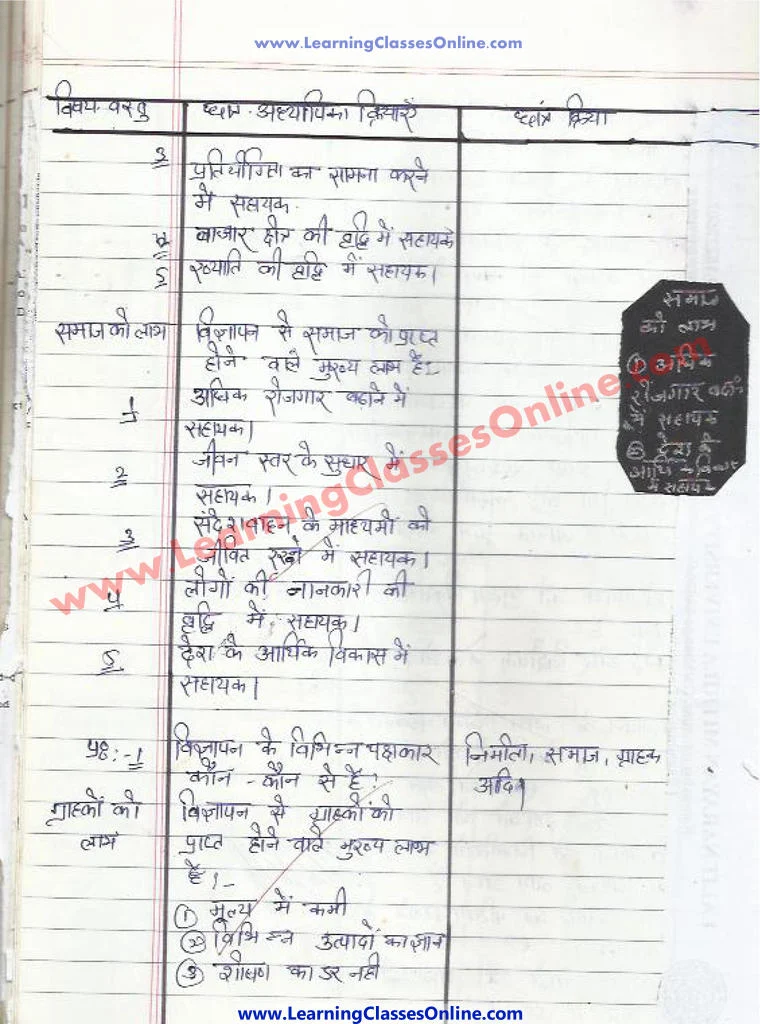 www.LearningClassesOnline.com
विषय-वस्तु छात्र-अध्यापिका क्रियाएँ छात्र क्रिया
3 प्रतियोगिता का सामना करने
में सहायक.
4 बाजार क्षेत्र की वृद्धि में सहायक
5 ख्याति की वृद्धि में सहायक।
समाज को लाभ विज्ञापन से समाज को प्राप्त
होने वाले मुख्य लाभ हैं:-
1 अधिक रोजगार बढाने में
सहायक।
2 जीवन स्तर के सुधार में
सहायक।
3 संदेशवाहन के माध्यमों को
जीवित रखने में सहायक।
4 लोगों की जानकारी की
वृद्धि में सहायक।
5 देश के आर्थिक विकास में
सहायक।
समाज
को लाभ
① अधिक
रोजगार बढाने
में सहायक
② देश के
आर्थिक विकास
में सहायक
www.LearningClassesOnline.com
प्रश्न:-1 विज्ञापन के विभिन्न पक्षकार निर्माता, समाज, ग्राहक
कौन-कौन से हैं? आदि।
ग्राहकों को विज्ञापन से ग्राहकों को
लाभ प्राप्त होने वाले मुख्य लाभ
हैं:-
① मूल्य में कमी
② विभिन्न उत्पादों का ज्ञान
③ शोषण का डर नही
www.LearningClassesOnline.com